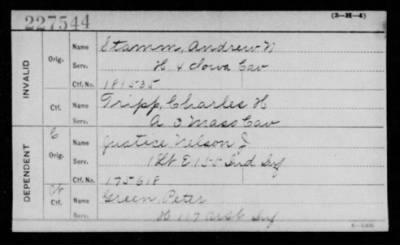 227544
(3-H-4)
INVALID
Orig.
Name Stamm, Andrew N
Serv. H 4 Iowa Cav
Ctf. No. 181535
Ctf.
Name Tripp, Charles H
Serv. A 3 Mass Cav
DEPENDENT
C
Orig.
Name Justice, Nelson J
Serv. 1 Lt E 155 Ind Inf
Ctf. No. 175618
Ctf.
Name Green, Peter
Serv. H 117 Inf